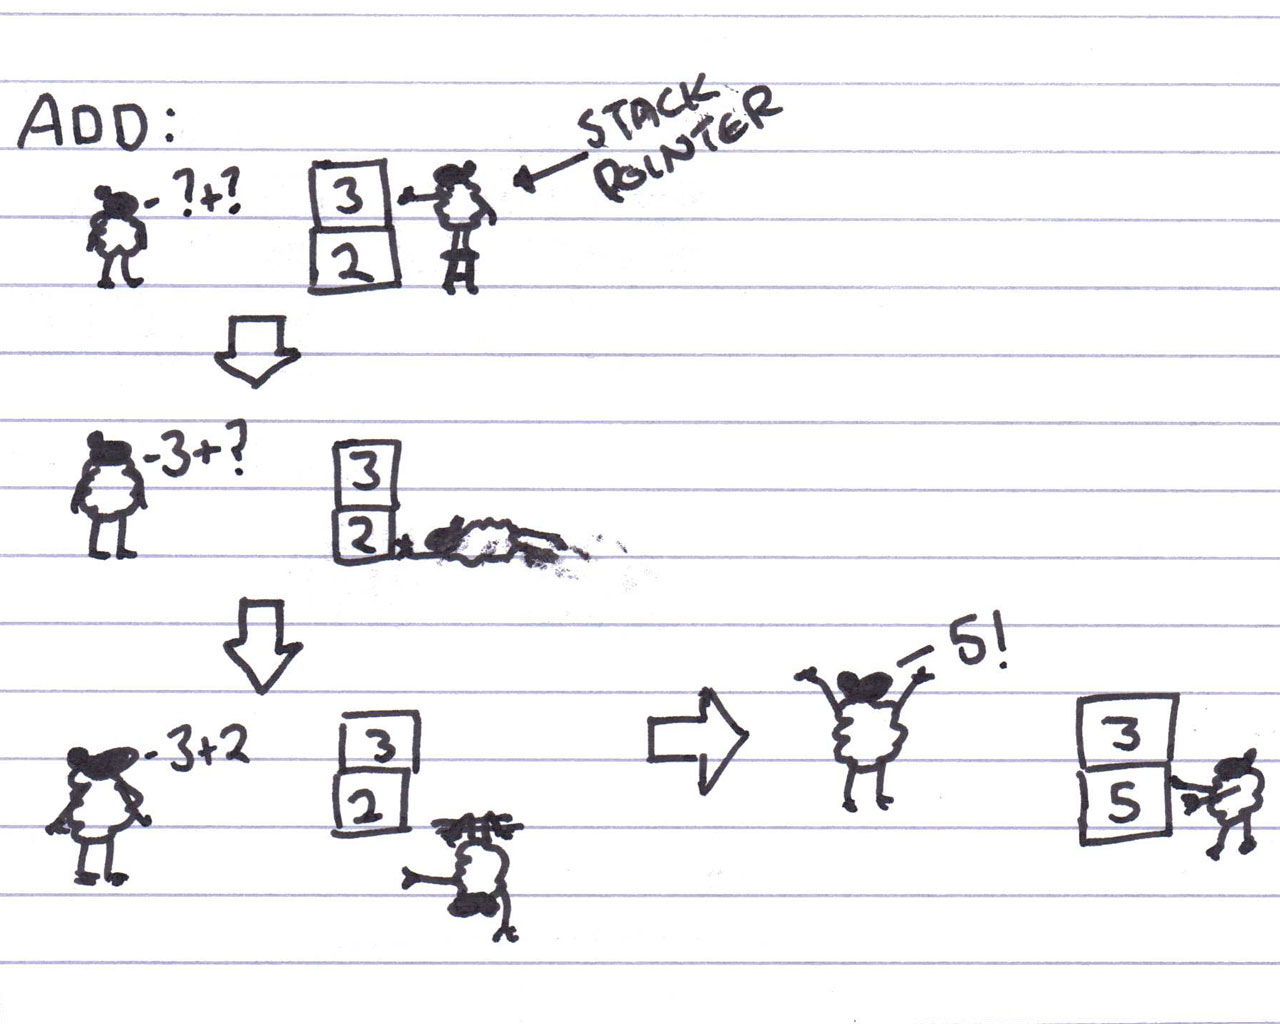 ADD:
STACK
POINTER
?+?
3
2
3+?
3
2
3+2
3
2
5!
3
5